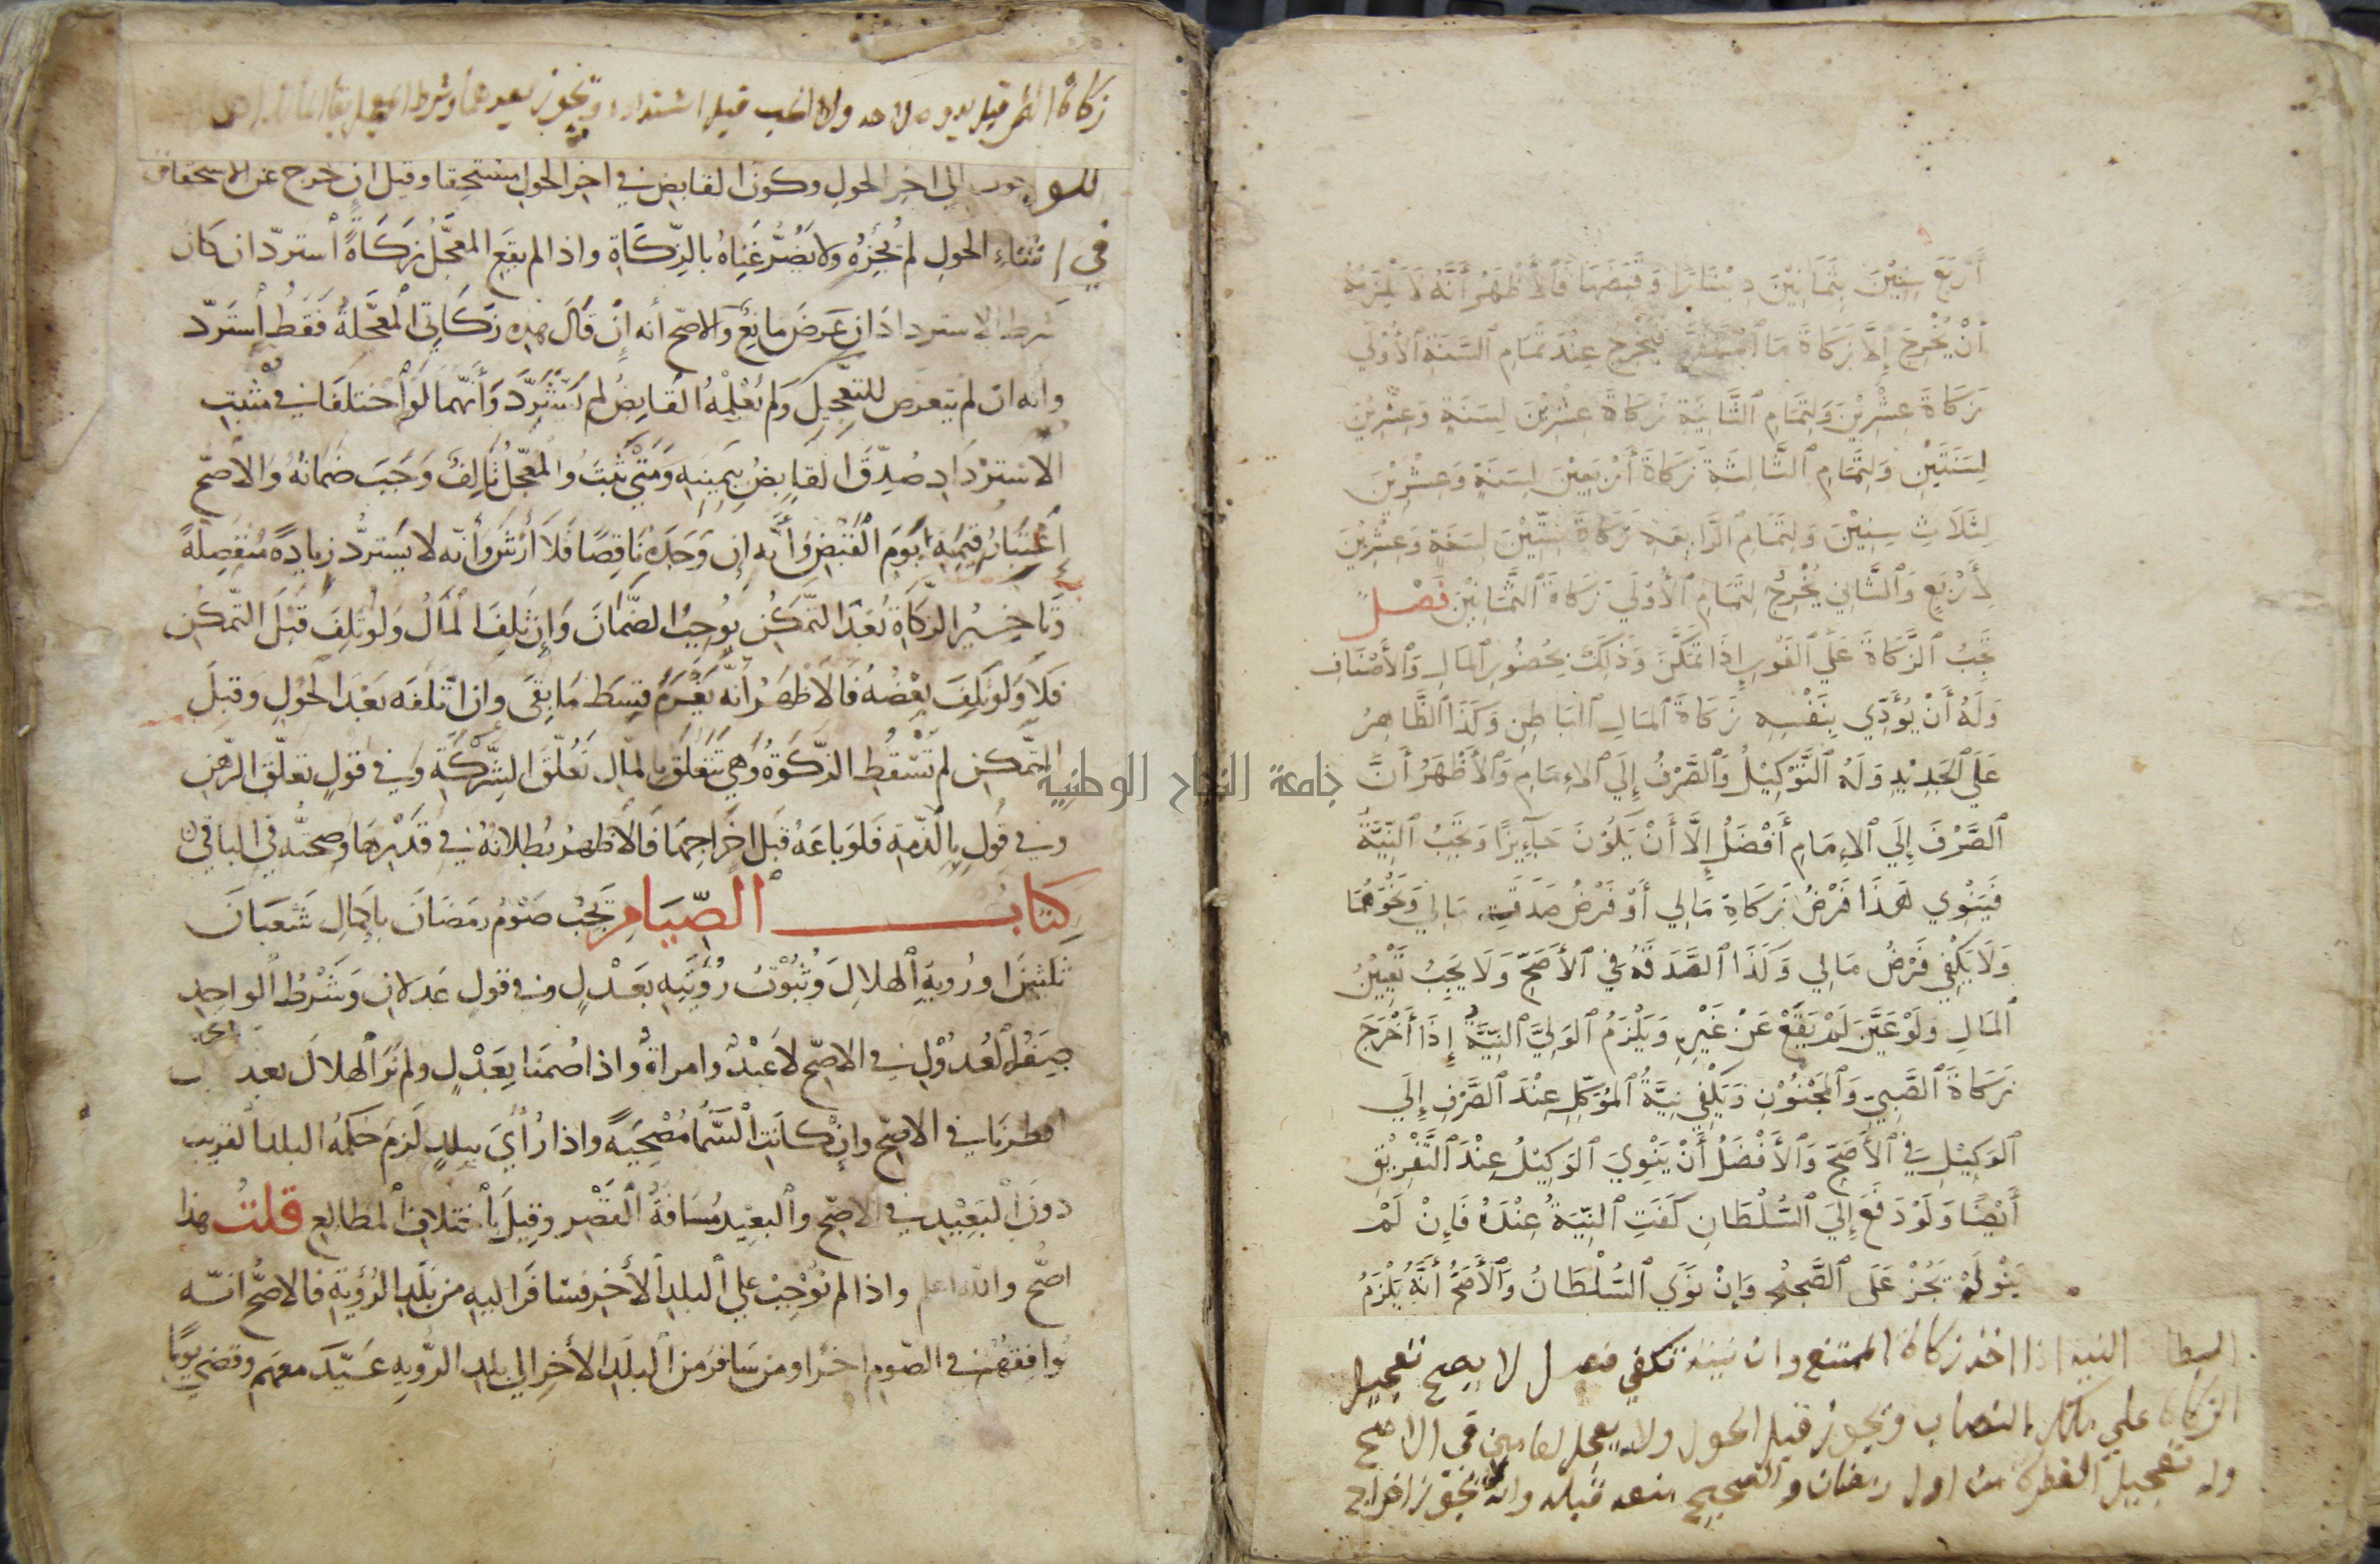 أَرْبَعَ سِنِيْنَ بِثَمَانِيْنَ دِيْنَارًا وَقَبَضَهَا فَٱلأَظْهَرُ أَنَّهُ لَا يَلْزَمُهُ
أَنْ يُخْرِجَ إِلَّا زَكَاةَ مَا ٱسْتَقَرَّ فَيُخْرِجُ عِنْدَ تَمَامِ ٱلسَّنَةِ ٱلأُوْلَي
زَكَاةَ عِشْرِيْنَ وَلِتَمَامِ ٱلثَّانِيَةِ زَكَاةَ عِشْرِيْنَ لِسَنَةٍ وَعِشْرِيْنَ
لِسَنَتَيْنِ وَلِتَمَامِ ٱلثَّالِثَةِ زَكَاةَ أَرْبَعِيْنَ لِسَنَةٍ وَعِشْرِيْنَ
لِثَلَاثِ سِنِيْنَ وَلِتَمَامِ ٱلرَّابِعَةِ زَكَاةَ سِتِّيْنَ لِسَنَةٍ وَعِشْرِيْنَ
لِأَرْبَعٍ وَٱلثَّانِي يُخْرِجُ لِتَمَامِ ٱلأُوْلَي زَكَاةَ ٱلثَّمَانِيْنَ فَصْلٌ
تَجِبُ ٱلزَّكَاةُ عَلَي ٱلفَوْرِ إِذَا تَمَكَّنَ وَذَلِكَ بِحُضُوْرِ ٱلمَالِ وَٱلأَصْنَافِ
وَلَهُ أَنْ يُؤَدِّي بِنَفْسِهِ زَكَاةَ ٱلمَالِ ٱلبَاطِنِ وَكَذَا ٱلظَّاهِرُ
عَلَي ٱلجَدِيْدِ وَلَهُ ٱلتَّوْكِيْلُ وَٱلصَّرْفُ إِلَي ٱلإِمَامِ وَٱلأَظْهَرُ أَنَّ
ٱلصَّرْفَ إِلَي ٱلإِمَامِ أَفْضَلُ إِلَّا أَنْ يَكُوْنَ جَآيِزًا وَتَجِبُ ٱلنِّيَّةُ
فَيَنْوِي هَذَا فَرْضُ زَكَاةِ مَالِي أَوْ فَرْضُ صَدَقَةِ مَالِي وَنَحْوَهُمَا
وَلَا يَكْفِي فَرْضُ مَالِي وَكَذَا ٱلصَّدَقَةُ فِي ٱلأَصَحِّ وَلَا يَجِبُ تَعْيِيْنُ
ٱلمَالِ وَلَوْ عَيَّنَ لَمْ يَقَعْ عَنْ غَيْرِهِ وَيَلْزَمُ ٱلوَلِيَّ ٱلنِّيَّةُ إِذَا أَخْرَجَ
زَكَاةَ ٱلصَّبِيِّ وَٱلمَجْنُوْنِ وَيَكْفِي نِيَّةُ ٱلمُوَكِّلِ عِنْدَ ٱلصَّرْفِ إِلَي
ٱلوَكِيْلِ فِي ٱلأَصَحِّ وَٱلأَفْضَلُ أَنْ يَنْوِيَ ٱلوَكِيْلُ عِنْدَ ٱلتَّفْرِيْقِ
أَيْضًا وَلَوْ دَفَعَ إِلَيَ ٱلسُّلْطَانِ كَفَتِ ٱلنِّيَّةُ عِنْدَهُ فَإِنْ لَمْ
يَنْوِ لَمْ يَجُزْ عَلَى ٱلصَّحِيْحِ وَإِنْ نَوَي ٱلسُّلْطَانُ وَٱلأَصَحُّ أَنَّهُ يَلْزَمُ
النيه اذا اخذ زكاة الممتنع وان نيته تكفي فصل لا يصح تعجيل
الزكاة علي ملك النصاب ويجوز قبل الحول ولا يعجل لعامين في الاصح
وله تعجيل الفطرة من اول رمضان والصحيح منعه قبله وانه لا يجوز اخراج
زكاة الثمر قبل بدو صلاحه ولا الحب قبل اشتداده ويجوز بعدهما وشرط المعجل بقا المالك اهلا
للوجوب الي اخر الحول وكون القابض في اخر الحول مستحقا وقيل ان خرج عن الاستحقاق
في اثناء الحول لم يُجْزِهُ ولا يَضُرُّ غِنَاهُ بالزِّكَاة واذا لم يقع المعجَّلُ زكَاةً استردّ ان كان
شرط الاسترداد ان عَرَضَ مانِعٌ والاصح أنه إنْ قَالَ هذه زَكَاتِي المُعَجَّلةُ فَقَطْ اسْتَرَدّ
وانه ان لم يتعرض للتعجيل وَلم يَعْلمْهُ القَابِضُ لم يَسْتَرِدَّ وَأَنَّهُمَا لَو اختلفَا في مُثْبِتِ
الاسْتِرْدَادِ صُدِّقَ القَابِضُ بِيَمِينِهِ وَمَتَى ثَبَتَ والمُعَجَّلُ تَالِفٌ وَجَبَ ضَمانهُ وَالأصحّ
إعْتِبَارُ قِيْمَتِهِ يَوْمَ القَبْضِ وَأنَّه إن وَجَدَهُ نَاقِصًا فَلَا أَرْشَ وَأنّه لا يَسْتَردُّ زِيادَةً مُنْفَصِلةً
وَتاخِيْرُ الزَّكَاةِ بَعْدَ التَّمَكُّنِ يُوجِبُ الضَّمَانَ وَإن تَلِفَ المَالُ وَلَو تَلِفَ قَبْلَ التَّمَكُّنِ
فَلا وَلَو تَلِفَ بَعْضُهُ فَالأظهَرُ أنّه يَغْرَمُ قِسْطَ مَا بَقِيَ وان اتْلَفَه بَعْدَ الحَوْلِ وقبلَ
التَّمَكُّنِ لم تَسْقُطِ الزّكَوةُ وَهِيَ تَتَعَلَّقُ بِالمَالِ تَعَلُّقَ الشِّرْكَةِ وَفي قولٍ تعلّقَ الرّهنِ
وفي قُولٍ بالذّمةِ فَلَو بَاعَهُ قَبْلَ اخرَاجِهَا فَالأظهرُ بُطلانهُ في قَدْرِهَا وصحتُه في الباقي
كِتَابُ ٱلصِّيَامِ تَجِبُ صَوْمُ رمَضَانَ بِإِكْمالِ شَعْبَانَ
ثلثينَ او رُويةِ الهلالِ وَثُبُوْتُ رُؤيَتِهِ بِعَدْلٍ وفي قول عَدلان وَشَرْطُ الواحِدِ
صِفَةُ العُدُوْلِ في الاصّح لا عَبْدٌ وامراةٌ واذا صُمنَا بِعَدْلٍ ولم نَرَ الهلالَ بعد
افطرنا في الاصح وإنْ كانَتِ السَّمَا مُصْحِيَةً واذا رُأيَ ببلدٍ لَزِمَ حُكمُهُ البلد القريب
دونَ البَعِيْدِ في الاصح والبعِيْدُ مَسَافَةُ القَصْرِ وقِيلَ باختلافِ المطالعِ قلتُ هذا
اصحُّ والله اعلم واذا لم نُوْجِبْ علي البلدِ الأخرِ فسَافَرَ اليهِ من بَلَدِ الرُؤيَةِ فالاصحُّ انّه
يُوافِقهُم في الصّوم اخرًا ومن سَافرَ من البلَدِ الأخرِ الي بلدِ الرُّويةِ عَيَّدَ معهم وقضي يومًا
جامعة النجاح الوطنية